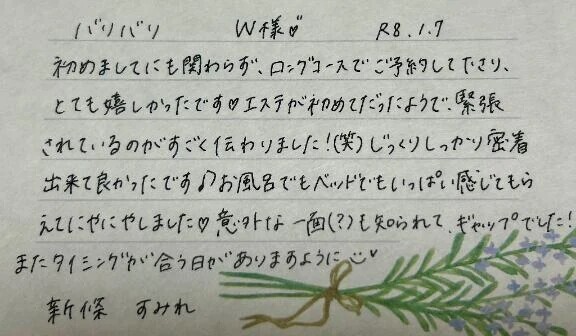 バリバリ W様♡ R8.1.7
初めましてにも関わらず、ロングコースでご予約して下さり、
とても嬉しかったです♡エステが初めてだったようで、緊張
されているのがすごく伝わりました!(笑)じっくりしっかり密着
出来て良かったです♪お風呂でもベッドでもいっぱい感じてもら
えてにやにやしました♡意外な一面(?)も知られて、ギャップでした!
またタイミングが合う日がありますように
新條 すみれ